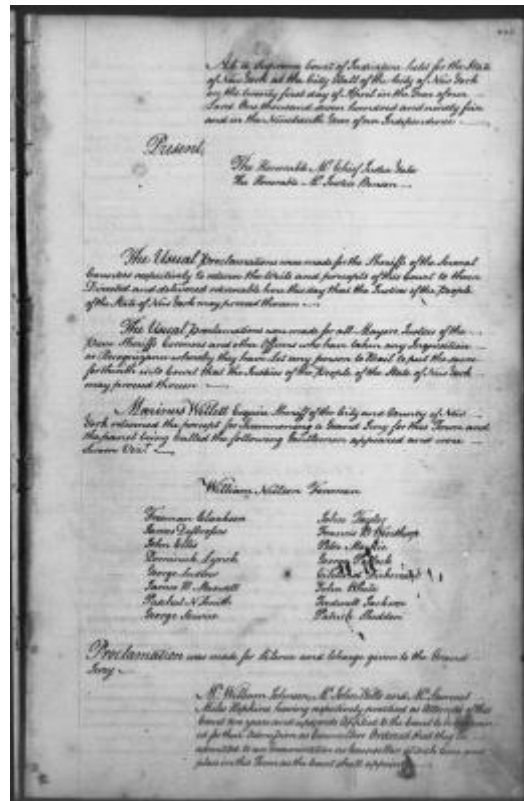 At a Supreme Court of Judicature held for the State
of New York at the City Hall of the City of New York
on the twenty first day of April in the Year of our
Lord One thousand seven hundred and ninety five
and in the Nineteenth Year of our Independence
Present,
The Honorable Mr Chief Justice Yates
The Honorable Mr Justice Benson
The Usual Proclamations was made for the Sheriffs of the several
Counties respectively to return the Writs and precepts of this Court to them
Directed and delivered returnable here this day that the Justices of the People
of the State of New York may proceed thereon
The Usual Proclamations was made for all Mayors Justices of the
Peace Sheriffs Coroners and other Officers who have taken any Inquisition
or Recognizance whereby they have let any person to Bail to put the same
forthwith into Court that the Justices of the People of the State of New York
may proceed thereon
Marinus Willett Esquire Sheriff of the City and County of New
York returned the precept for Summoning a Grand Jury for this Term and
the panel being Called the following Gentlemen appeared and were
Sworn Vizt
William Neilson Foreman
Freeman Clarkson
James Desbrosses
John Ellis
Dominick Lynch
George
James H. Maxwell
Paschal N Smith
George
John Taylor
Francis B Winthrop
Peter
George Pollock
John White
Jackson
Patrick
Proclamation was made for silence and Charge given to the Grand
Jury
Mr William Johnson, Mr John Wells and Mr Samuel
Miles Hopkins having respectively practised as Attornies of this
Court three years and upwards Applied to the Court to be
for their Admission as Counsellors Ordered that they be
admitted to an Examination as Counsellors at such time and
place in this Term as the Court shall appoint